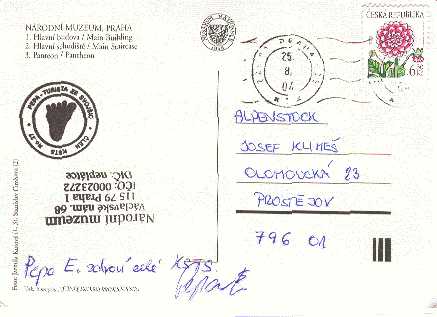 NÁRODNÍ MUZEUM, PRAHA
1. Hlavní budova / Main Building
2. Hlavní schodiště / Main Staircase
3. Panteon / Pantheon
ČESKÁ REPUBLIKA
6
PRAHA
25.
8.
04
PEPA - TURISTA ZE
ČLEN KSTS No. 27
Národní muzeum
Václavské nám. 68
115 79 Praha 1
IČO: 00023272
DIČ: neplátce
ALPENSTOCK
JOSEF KLIMEŠ
OLOMOUCKÁ 23
PROSTĚJOV
796 01
Pepa E. zdraví celé KSTS.